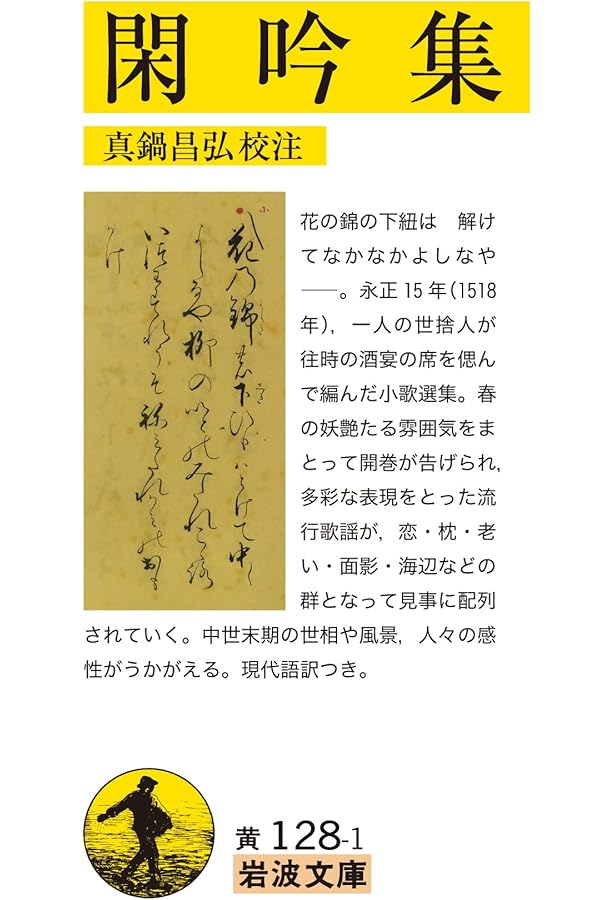 閑吟集
真鍋昌弘校注
小
花乃錦の下ひもハとけて中〱
よしなや柳の
かけ
花の錦の下紐は　解け
てなかなかよしなや
――。永正15年(1518
年)，一人の世捨人が
往時の酒宴の席を偲ん
で編んだ小歌選集。春
の妖艶たる雰囲気をま
とって開巻が告げられ，
多彩な表現をとった流
行歌謡が，恋・枕・老
い・面影・海辺などの
群となって見事に配列
されていく。中世末期の世相や風景，人々の感
性がうかがえる。現代語訳つき。
黄 128-1
岩波文庫